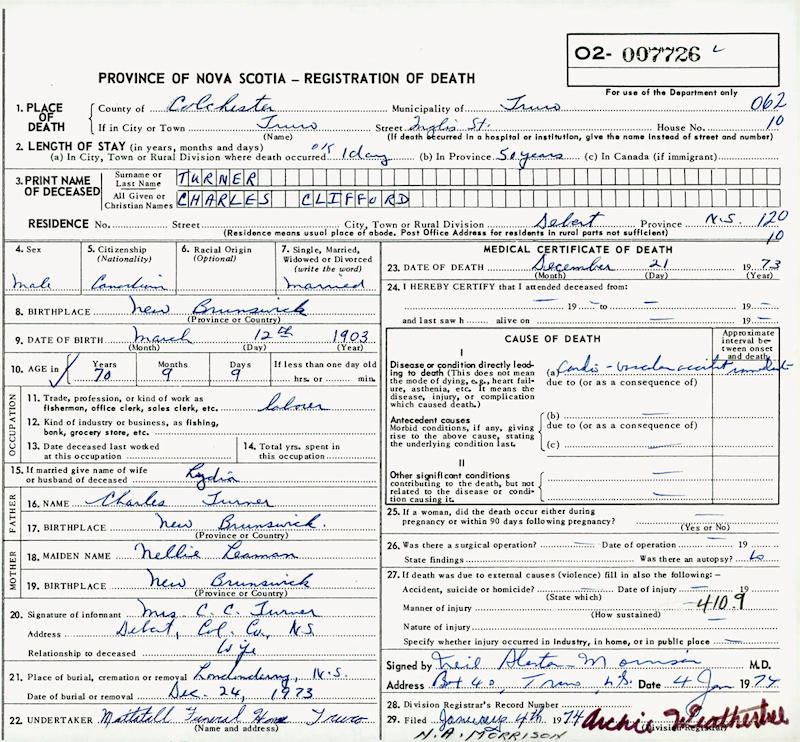 O2- 007726
For use of the Department only
PROVINCE OF NOVA SCOTIA — REGISTRATION OF DEATH
1. PLACE OF DEATH County of Colchester Municipality of Truro 062
If in City or Town Truro (Name) Street Inglis St. House No. 10
(If death occurred in a hospital or institution, give the name instead of street and number)
2. LENGTH OF STAY (in years, months and days)
(a) In City, Town or Rural Division where death occurred OK 1 day (b) In Province 50 years (c) In Canada (if immigrant)
3. PRINT NAME OF DECEASED Surname or Last Name TURNER
All Given or Christian Names CHARLES CLIFFORD
RESIDENCE No. Street City, Town or Rural Division Debert Province N.S. 120
(Residence means usual place of abode. Post Office Address for residents in rural parts not sufficient) 10
4. Sex
Male
5. Citizenship (Nationality)
Canadian
6. Racial Origin (Optional)
7. Single, Married, Widowed or Divorced (write the word)
Married
8. BIRTHPLACE New Brunswick
(Province or Country)
9. DATE OF BIRTH March 12th 1903
(Month) (Day) (Year)
10. AGE in Years 70 Months 9 Days 9 If less than one day old hrs. or min.
OCCUPATION
11. Trade, profession, or kind of work as fisherman, office clerk, sales clerk, etc. labourer
12. Kind of industry or business, as fishing, bank, grocery store, etc.
13. Date deceased last worked at this occupation
14. Total yrs. spent in this occupation
15. If married give name of wife or husband of deceased Lydia
FATHER
16. NAME Charles Turner
17. BIRTHPLACE New Brunswick.
(Province or Country)
MOTHER
18. MAIDEN NAME Nellie Leaman
19. BIRTHPLACE New Brunswick
(Province or Country)
20. Signature of informant Mrs C. C. Turner
Address Debert, Col. Co., N.S.
Relationship to deceased Wife
21. Place of burial, cremation or removal Londonderry, N.S.
Date of burial or removal Dec. 24, 1973
22. UNDERTAKER Mattatall Funeral Home Truro
(Name and address)
MEDICAL CERTIFICATE OF DEATH
23. DATE OF DEATH December 21 1973
(Month) (Day)
24. I HEREBY CERTIFY that I attended deceased from:
— 19 — to — 19 —
and last saw h — alive on — 19 —
CAUSE OF DEATH
Approximate interval between onset and death
I
Disease or condition directly leading to death (This does not mean the mode of dying, e.g., heart failure, asthenia, etc. It means the disease, injury, or complication which caused death.)
(a) Cardio-vascular accident immediate
due to (or as a consequence of)
Antecedent causes
Morbid conditions, if any, giving rise to the above cause, stating the underlying condition last.
(b) —
due to (or as a consequence of)
(c) —
II
Other significant conditions contributing to the death, but not related to the disease or condition causing it.
25. If a woman, did the death occur either during pregnancy or within 90 days following pregnancy? —
(Yes or No)
26. Was there a surgical operation? — Date of operation — 19
State findings — Was there an autopsy? No
27. If death was due to external causes (violence) fill in also the following:—
Accident, suicide or homicide? — Date of injury — 19
(State which)
Manner of injury — 410.9
(How sustained)
Nature of injury —
Specify whether injury occurred in industry, in home, or in public place —
Signed by Neil Alerton Morrison M.D.
Address Box 40, Truro, N.S. Date 4 Jan 1974
28. Division Registrar's Record Number
29. Filed January 4th 1974 Archie Weatherbee
(Division Registrar)
N.A. MORRISON